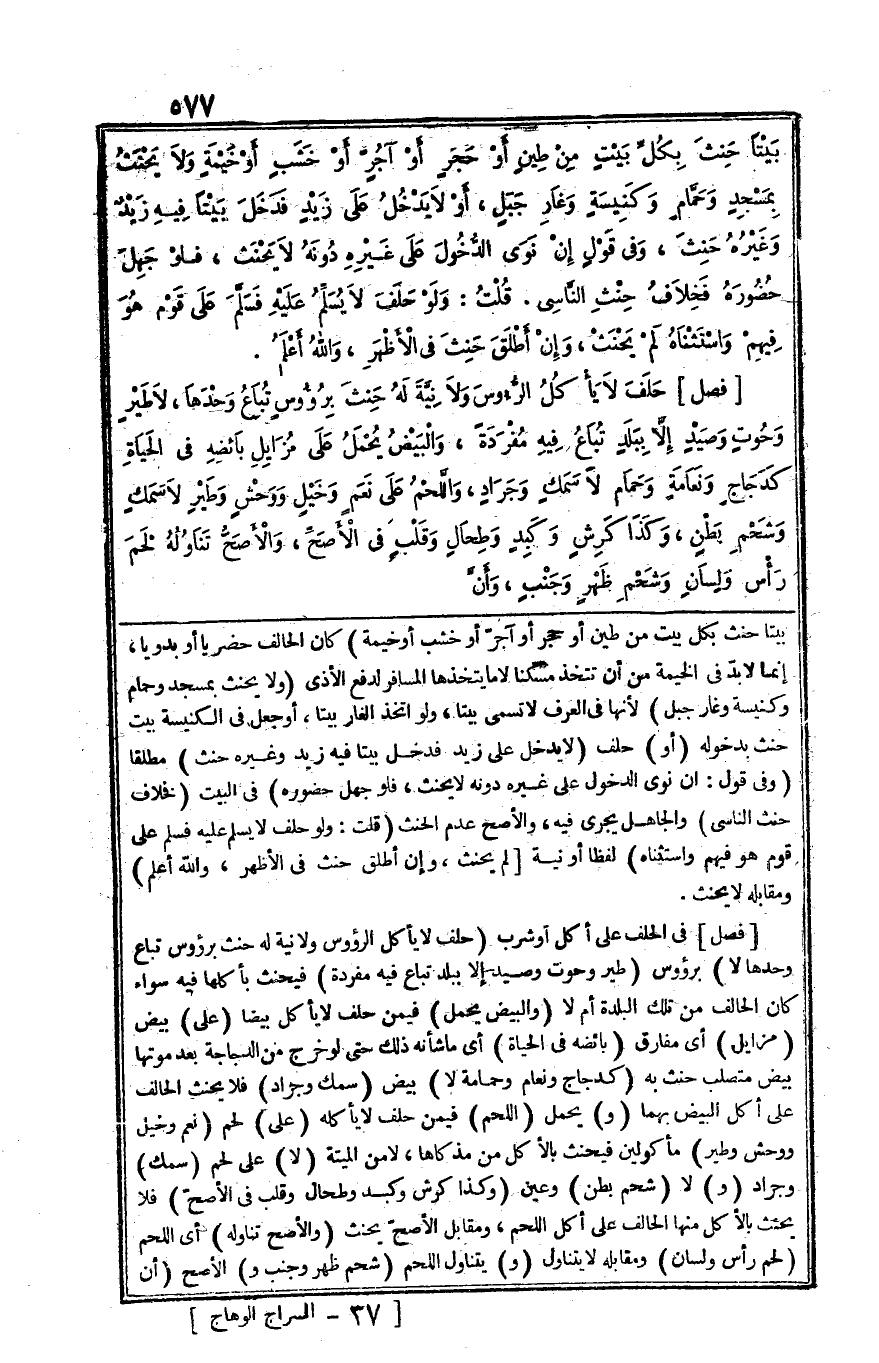 ٥٧٧
بَيْتًا حَنِثَ بِكُلِّ بَيْتٍ مِنْ طِينٍ أَوْ حَجَرٍ أَوْ آجُرٍّ أَوْ خَشَبٍ أَوْ خَيْمَةٍ وَلاَ يَحْنَثُ
بِمَسْجِدٍ وَحَمَّامٍ وَكَنِيسَةٍ وَغَارِ جَبَلٍ ، أَوْ لاَيَدْخُلُ عَلَى زَيْدٍ فَدَخَلَ بَيْتًا فِيهِ زَيْدٌ
وَغَيْرُهُ حَنِثَ ، وَفِى قَوْلٍ إِنْ نَوَى الدُّخُولَ عَلَى غَيْرِهِ دُونَهُ لاَيَحْنَثُ ، فَلَوْ جَهِلَ
حُضُورَهُ فَخِلاَفُ حِنْثِ النَّاسِى . قُلْتُ : وَلَوْ حَلَفَ لاَ يُسَلِّمُ عَلَيْهِ فَسَلَّمَ عَلَى قَوْمٍ هُوَ
فِيهِمْ وَاسْتَثْنَاهُ لَمْ يَحْنَثْ ، وَإِنْ أَطْلَقَ حَنِثَ فِى الْأَظْهَرِ ، وَاللهُ أَعْلَمُ .
[ فصل ] حَلَفَ لاَ يَأْكُلُ الرُّءوسَ وَلاَ نِيَّةَ لَهُ حَنِثَ بِرُءُوسٍ تُبَاعُ وَحْدَهَا ، لاَطَيْرٍ
وَحُوتٍ وَصَيْدٍ إِلَّا بِبَلَدٍ تُبَاعُ فِيهِ مُفْرَدَةً ، وَالْبَيْضُ يُحْمَلُ عَلَى مُزَايِلِ بَائِضِهِ فِى الْحَيَاةِ
كَدَجَاجٍ وَنَعَامَةٍ وَحَمَامٍ لاَ سَمَكٍ وَجَرَادٍ ، وَاللَّحْمُ عَلَى نَعَمٍ وَخَيْلٍ وَوَحْشٍ وَطَيْرٍ لاَسَمَكٍ
وَشَحْمِ بَطْنٍ ، وَكَذَا كَرِشٍ وَكَبِدٍ وَطِحَالٍ وَقَلْبٍ فِى الْأَصَحِّ ، وَالْأَصَحُّ تَنَاوُلُهُ لَحْمَ
رَأْسٍ وَلِسَانٍ وَشَحْمِ ظَهْرٍ وَجَنْبٍ ، وَأَنَّ
بيتا حنث بكل بيت من طين أو حجر أو آجرّ أو خشب أوخيمة ) كان الحالف حضريا أو بدويا ،
إنما لابدّ فى الخيمة من أن تتخذ مسكنا لامايتخذها المسافر لدفع الأذى ( ولا يحنث بمسجد وحمام
وكنيسة وغار جبل ) لأنها فى العرف لاتسمى بيتا ، ولو اتخذ الغار بيتا ، أوجعل فى الكنيسة بيت
حنث بدخوله ( أو ) حلف ( لايدخل على زيد فدخل بيتا فيه زيد وغيره حنث ) مطلقا
( وفى قول : ان نوى الدخول على غيره دونه لايحنث ، فلو جهل حضوره ) فى البيت ( فخلاف
حنث الناسى ) والجاهل يجرى فيه ، والأصح عدم الحنث ( قلت : ولو حلف لايسلم عليه فسلم على
قوم هو فيهم واستثناه ) لفظا أو نية [ لم يحنث ، وإن أطلق حنث فى الأظهر ، والله أعلم )
ومقابله لايحنث .
[ فصل ] فى الحلف على أكل أوشرب ( حلف لايأكل الرؤوس ولانية له حنث برؤوس تباع
وحدها لا ) برؤوس ( طير وحوت وصيد إلا ببلد تباع فيه مفردة ) فيحنث بأكلها فيه سواء
كان الحالف من تلك البلدة أم لا ( والبيض يحمل ) فيمن حلف لايأكل بيضا ( على ) بيض
( مزايل ) أى مفارق ( بائضه فى الحياة ) أى ماشأنه ذلك حتى لوخرج من الدجاجة بعدموتها
بيض متصلب حنث به ( كدجاج ونعام وحمامة لا ) بيض ( سمك وجراد ) فلا يحنث الحالف
على أكل البيض بهما ( و ) يحمل ( اللحم ) فيمن حلف لايأكله ( على ) لحم ( نعم وخيل
ووحش وطير ) مأكولين فيحنث بالأكل من مذكاها ، لامن الميتة ( لا ) على لحم ( سمك )
وجراد ( و ) لا ( شحم بطن ) وعين ( وكذا كرش وكبد وطحال وقلب فى الأصحّ ) فلا
يحنث بالأكل منها الحالف على أكل اللحم ، ومقابل الأصحّ يحنث ( والأصح تناوله ) أى اللحم
( لحم رأس ولسان ) ومقابله لايتناول ( و ) يتناول اللحم ( شحم ظهر وجنب و ) الأصح ( أن
[ ٣٧ - السراج الوهاج ]